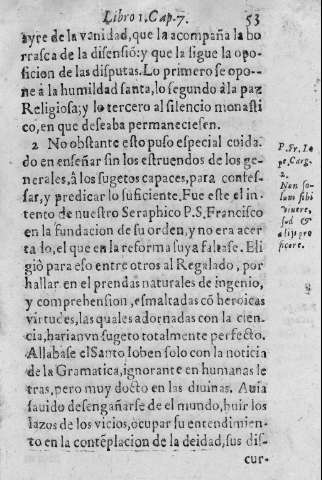 Libro 1. Cap. 7. 53
ayre de la vanidad, que la acompaña la bo
rrasca de la disensiō: y que la sigue la opo-
sicion de las disputas. Lo primero se opo-
ne à la humildad santa, lo segundo à la paz
Religiosa; y lo tercero al silencio monasti
co, en que deseaba permaneciesen.
2 No obstante esto puso especial cuida.
do en enseñar sin los estruendos de los ge-
nerales, â los sugetos capaces, para confes-
sar, y predicar lo suficiente. Fue este el in-
tento de nuestro Seraphico P. S. Francisco
en la fundacion de su orden, y no era acer
ta lo, el que en la reforma suya faltase. Eli
giò para eso entre otros al Regalado, por
hallar en el prendas naturales de ingenio,
y comprehension, esmaltadas cō heroicas
virtudes, las quales adornadas con la cien
cia, harian vn sugeto totalmente perfecto.
Allabase el Santo Ioben solo con la noticia
de la Gramatica, ignorante en humanas le
tras, pero muy docto en las diuinas. Auia
sauido desengañarse de el mundo, huir los
lazos de los vicios, ocupar su entendimien-
to en la contēplacion de la deidad, sus dis-
cur-
P. Fr. Lo
pe, Carg.
2.
Non so-
lum sibi
viuere,
sed &
alijs pro
ficere.